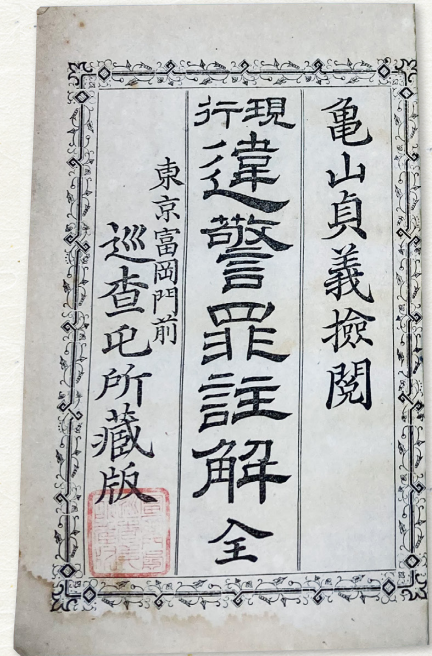 亀山貞義撿閲
現行
違警罪註解 全
東京富岡門前
巡查屯所藏版